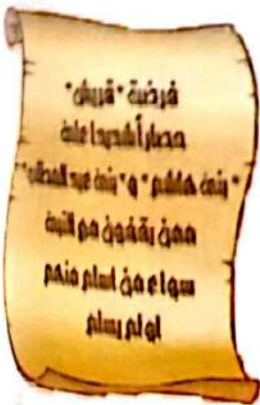 فرضت "قريش"
حصاراً شديدا على
"بنى هاشم" و "بنى عبد المطلب"
ممن يقفون مع النبى
سواء من اسلم منهم
او لم يسلم